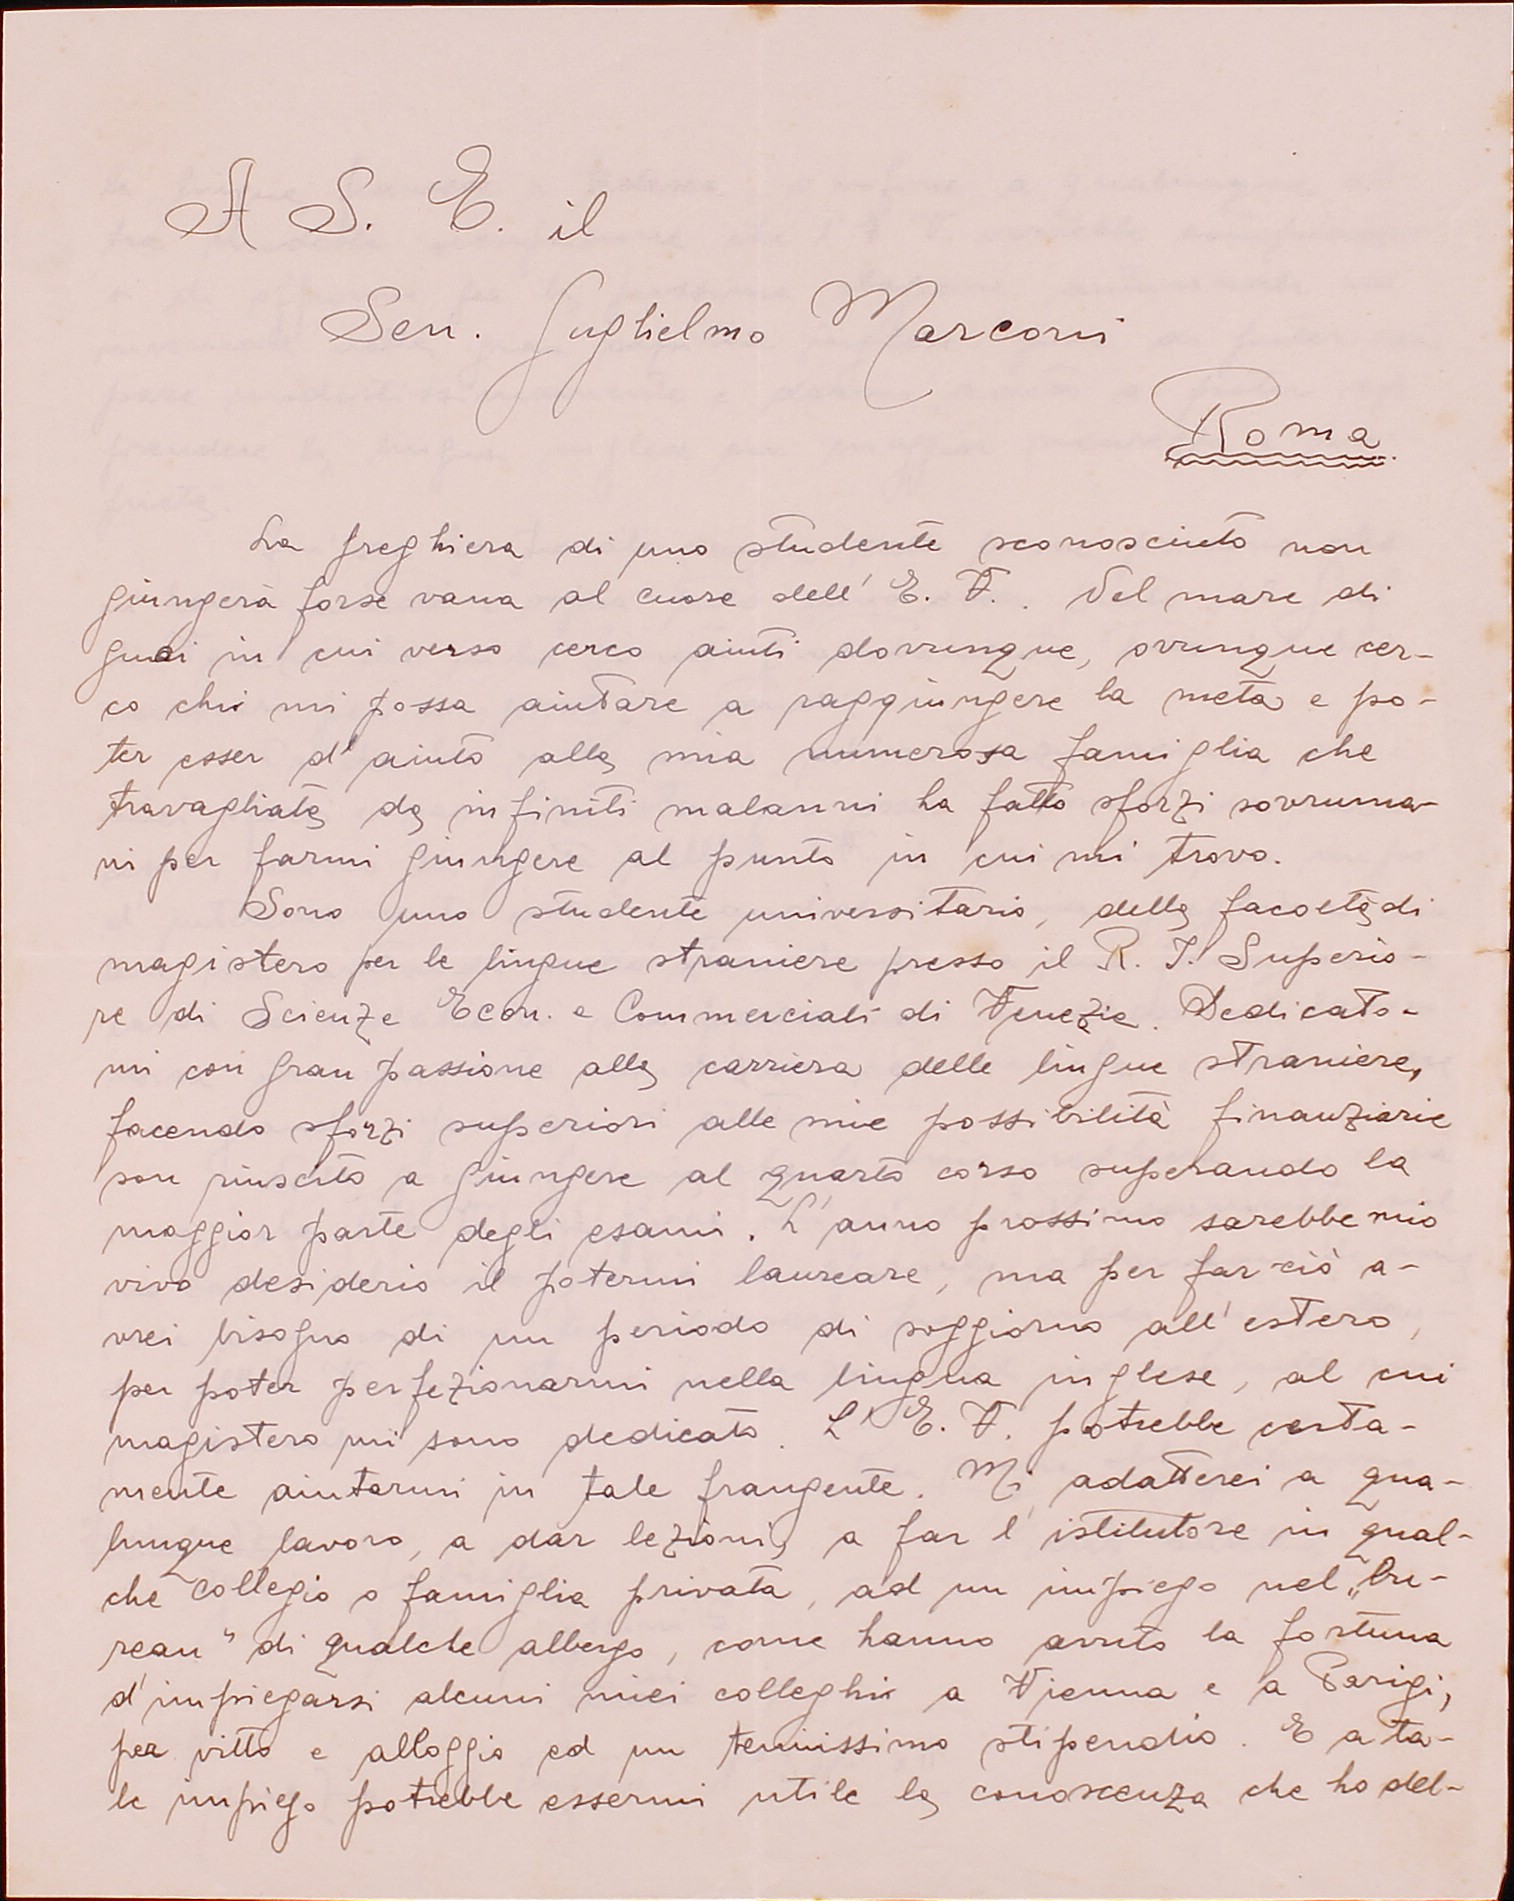 A S. E. il
Sen. Guglielmo Marconi
Roma
La preghiera di uno studente sconosciuto non
giungerà forse vana al cuore dell' E. V. . Nel mare di
guai in cui verso cerco aiuti dovunque, ovunque cer-
co chi mi possa aiutare a raggiungere la meta e po-
ter esser d'aiuto alla mia numerosa famiglia che
travagliata da infiniti malanni ha fatto sforzi sovruma-
ni per farmi giungere al punto in cui mi trovo.
Sono uno studente universitario, della facoltà di
magistero per le lingue straniere presso il R. I. Superio-
re di Scienze Econ. e Commerciali di Venezia. Dedicato-
mi con gran passione alla carriera delle lingue straniere,
facendo sforzi superiori alle mie possibilità finanziarie
son riuscito a giungere al quarto corso superando la
maggior parte degli esami. L'anno prossimo sarebbe mio
vivo desiderio il potermi laureare, ma per far ciò a-
vrei bisogno di un periodo di soggiorno all'estero,
per poter perfezionarmi nella lingua inglese, al cui
magistero mi sono dedicato. L' E. V. potrebbe certa-
mente aiutarmi in tale frangente. Mi adatterei a qua-
lunque lavoro, a dar lezioni, a far l'istitutore in qual-
che collegio o famiglia privata, ad un impiego nel „bu-
reau" di qualche albergo, come hanno avuto la fortuna
d'impiegarsi alcuni miei colleghi a Vienna e a Parigi,
per vitto e alloggio ed un tenuissimo stipendio. E a ta-
le impiego potrebbe essermi utile la conoscenza che ho del-